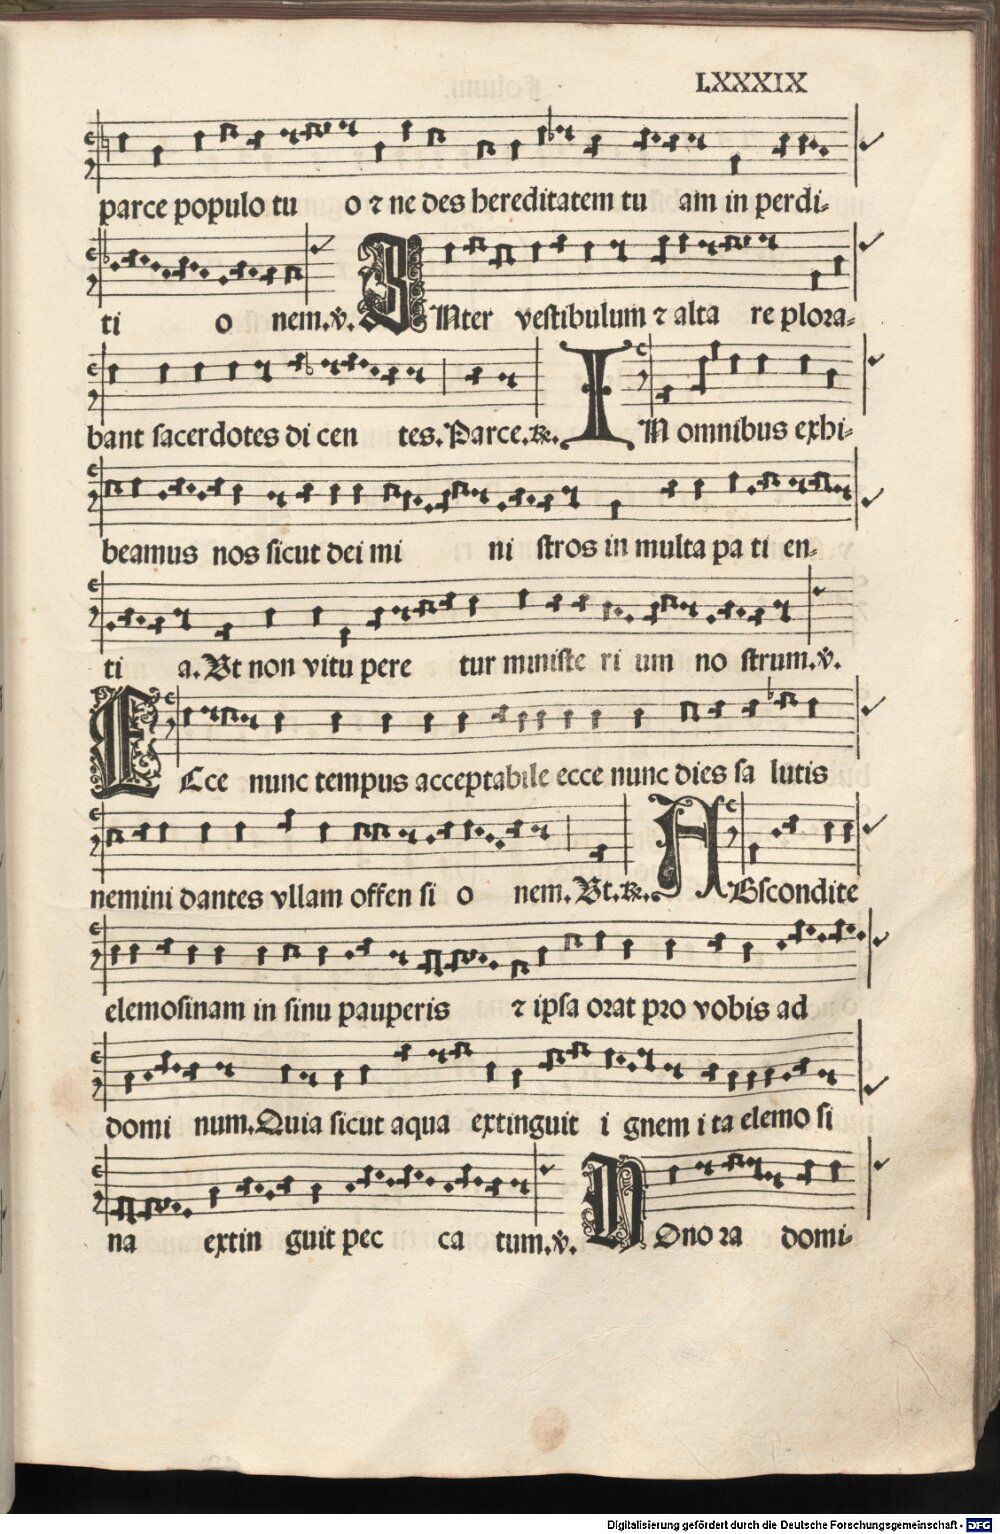 LXXXIX
parce populo tu o ⁊ ne des hereditatem tu am in perdi-
ti o nem.℣. INter vestibulum ⁊ alta re plora-
bant sacerdotes di cen tes. Parce.℟. IN omnibus exhi-
beamus nos sicut dei mi ni stros in multa pa ti en-
ti a. Vt non vitu pere tur ministe ri um no strum.℣.
ECce nunc tempus acceptabile ecce nunc dies sa lutis
nemini dantes vllam offen si o nem. Vt.℟. ABscondite
elemosinam in sinu pauperis ⁊ ipsa orat pro vobis ad
domi num. Quia sicut aqua extinguit i gnem i ta elemo si
na extin guit pec ca tum.℣. HOno ra domi-
Digitalisierung gefördert durch die Deutsche Forschungsgemeinschaft - DFG